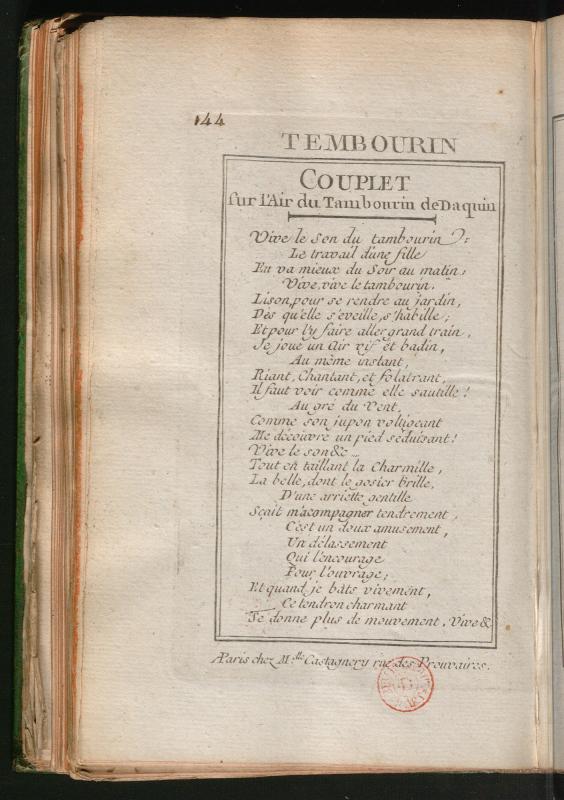 144
TEMBOURIN
COUPLET
sur l'Air du Tambourin de Daquin
Vive le son du tambourin :
Le travail d'une fille
En va mieux du Soir au matin ;
Vive, vive le tambourin.
Lison, pour se rendre au jardin,
Dès qu'elle s'eveille, s'habille ;
Et pour l'y faire aller grand train,
Je joue un Air vif et badin,
Au même instant,
Riant, Chantant, et folatrant,
Il faut voir comme elle sautille !
Au gré du Vent,
Comme son jupon voltigeant
Me découvre un pied séduisant !
Vive le son &c ...
Tout en taillant la Charmille,
La belle, dont le gosier brille,
D'une arriette gentille
Sçait m'acompagner tendrement,
C'est un doux amusement,
Un délassement
Qui l'encourage
Pour l'ouvrage ;
Et quand je bâts vivement,
Ce tendron charmant
Se donne plus de mouvement. Vive &
A Paris chez M.lle Castagnery rue des Prouvaires.